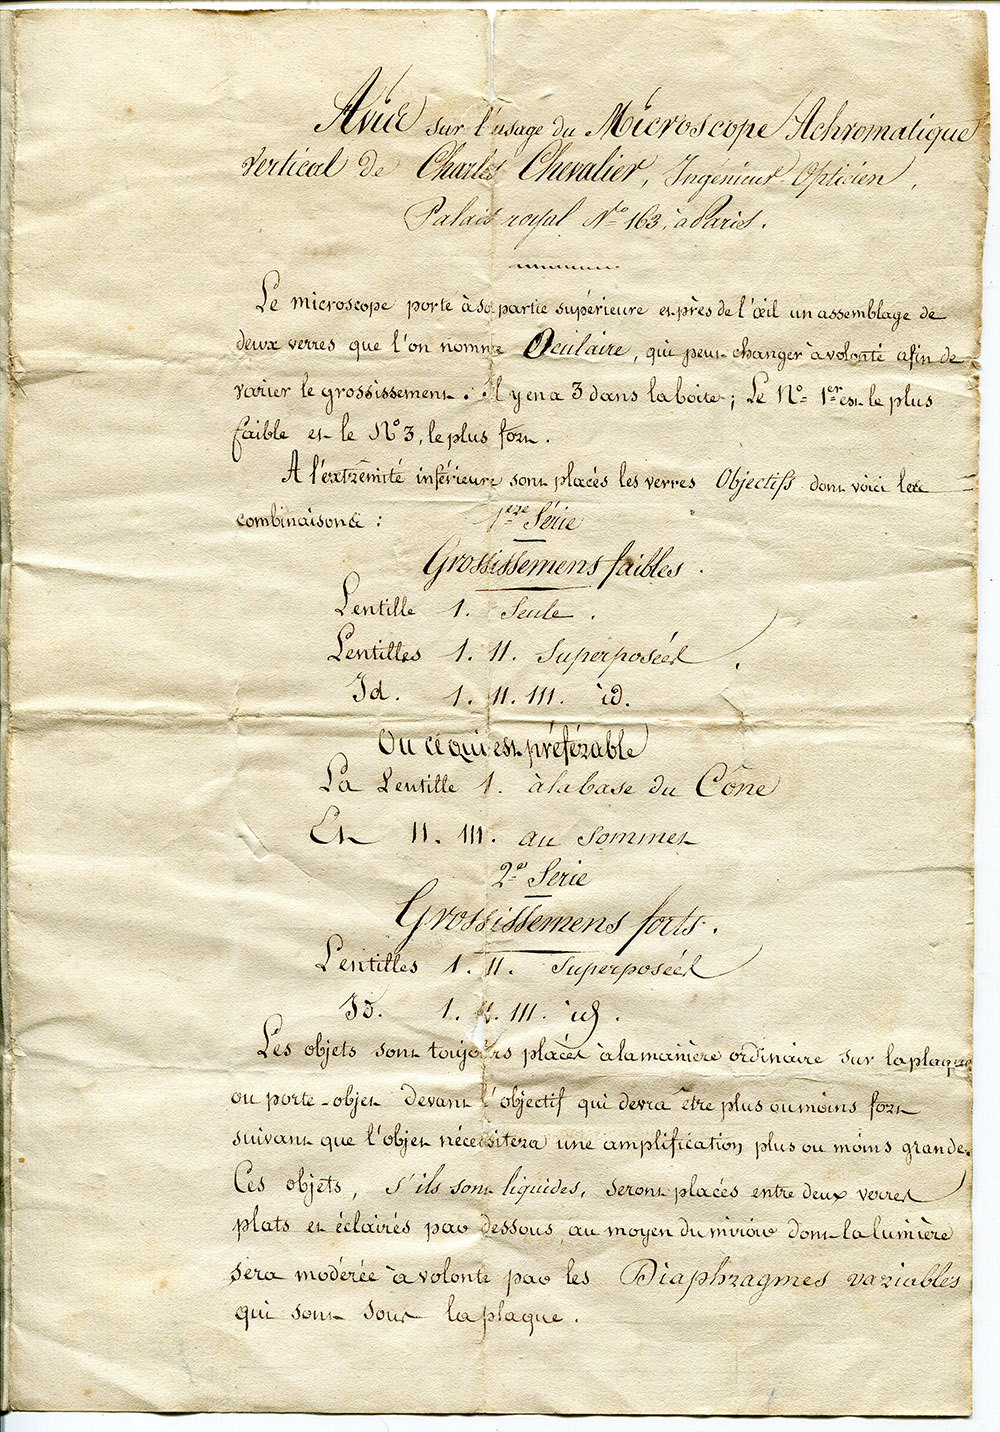 Avis sur l'usage du Microscope Achromatique
vertical de Charles Chevalier, Ingénieur-Opticien,
Palais royal N.to 163, à Paris.
Le microscope porte à sa partie supérieure et près de l'œil un assemblage de
deux verres que l'on nomme Oculaire, qui peut changer à volonté afin de
varier le grossissement. Il y en a 3 dans la boite; Le N.o 1.er est le plus
faible et le N.o 3, le plus fort.
A l'extrêmité inférieure sont placés les verres Objectifs dont voici les
combinaisons :
1.ere Série
Grossissemens faibles.
Lentille 1. Seule.
Lentilles 1. II. Superposées.
Id. 1. II. III. id.
Ou ce qui est préférable
La Lentille 1. à la base du Cône
Et II. III. au Sommet
2.e Serie
Grossissemens forts.
Lentilles 1. II. Superposées
Id. 1. II. III. id.
Les objets sont toujours placés à la manière ordinaire sur la plaque
ou porte-objet devant l'objectif qui devra être plus ou moins fort
suivant que l'objet nécessitera une amplification plus ou moins grande.
Ces objets, s'ils sont liquides, seront placés entre deux verres
plats et éclairés par dessous au moyen du miroir dont la lumière
sera modérée à volonté par les Diaphragmes variables
qui sont sous la plaque.